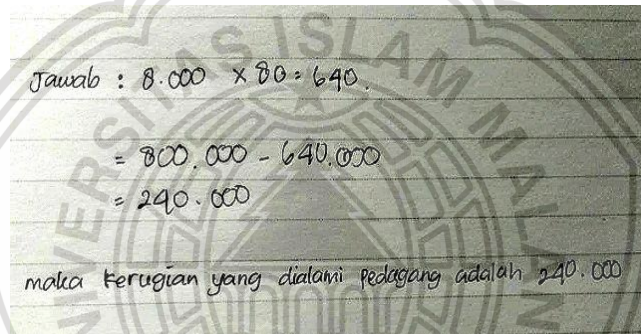 Jawab : 8.000 x 80 = 640.
= 800.000 - 640.000
= 240.000
maka kerugian yang dialami pedagang adalah 240.000